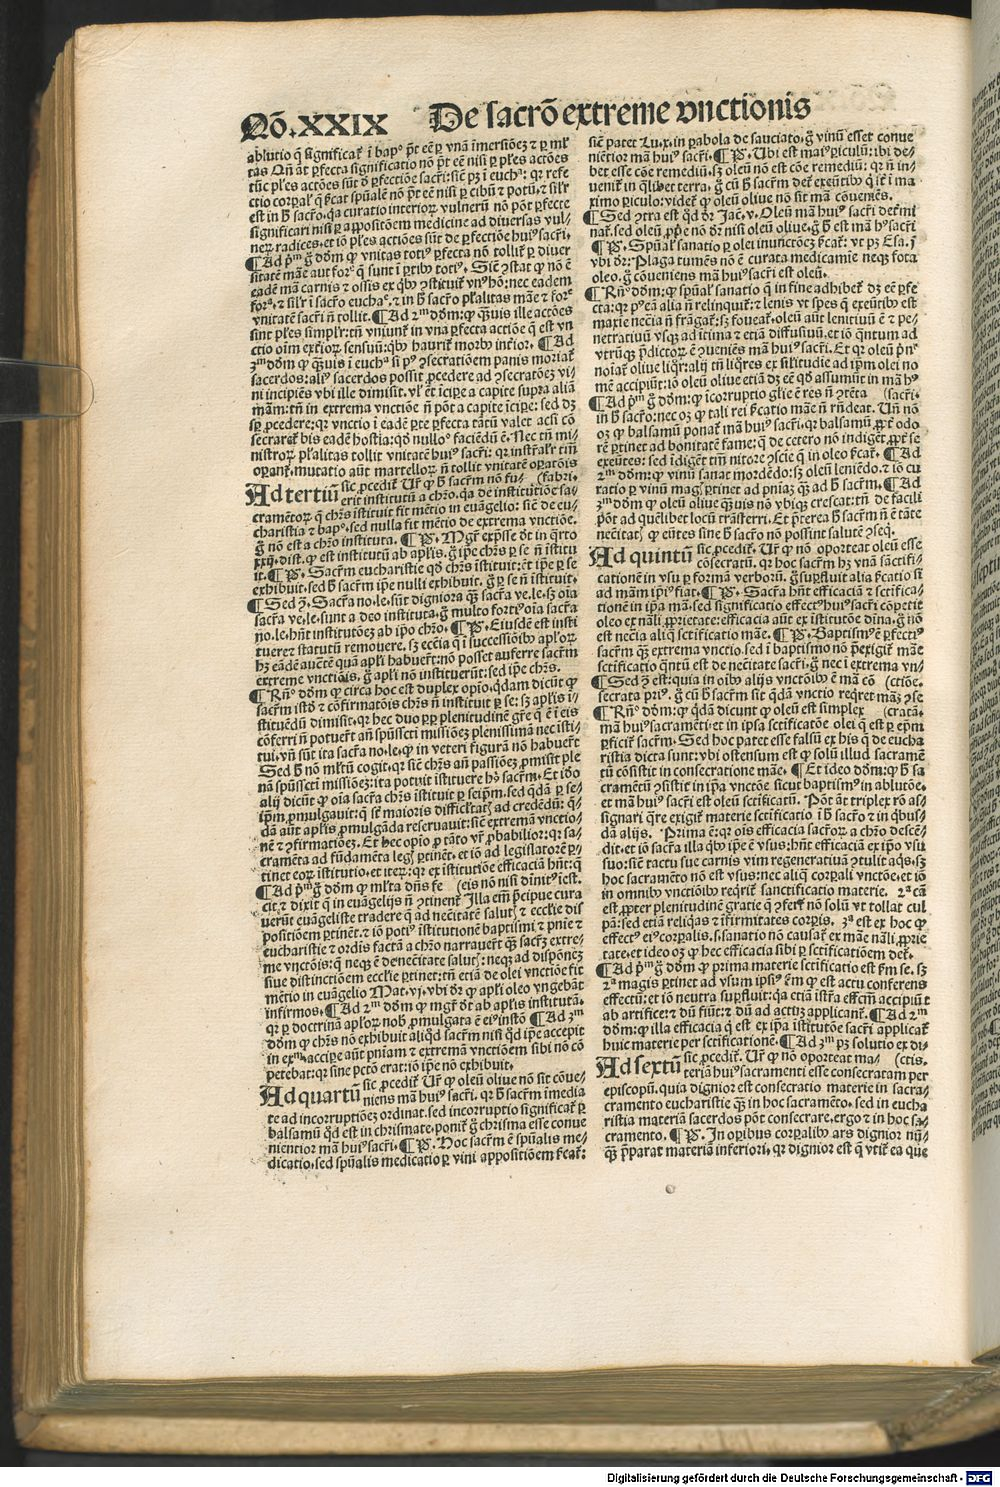 Qō.XXIX De sacrō extreme vnctionis
ablutio q̄ significat᷑ ī bapº p̄t eē ꝑ vnā īmersiōeꝫ ⁊ ꝑ ml᷑
tas Qn̄ āt ꝑfecta significatio nō p̄t eē nisi ꝑ pl᷑es actōes
tūc pl᷑es actōes sūt ō ꝑfectiōe sacr̄i: sic̄ pꝫ ī eucha: qꝛ refe
est in h̄ sacr̄o, qa curatio interioꝝ vulneꝝ nō pōt ꝑfecte
significari nisi ꝑ appositōem medicine ad diuersas vul⸗
neꝝ radices. et iō pl᷑es actiōes sūt de ꝑfectiōe huiꝰ sacr̄i.
¶ Ad pᵐ ḡ dōm ꝙ vnitas totiꝰ ꝑfecta nō tollit᷑ ꝑ diuer
vnitatē sacr̄i n̄ tollit. ¶ Ad 2ᵐ dōm: ꝙ q̄uis ille actōes
sacerdos: aliꝰ sacerdos possit ꝓcedere ad ꝯsecratōeꝫ vi⸗
ni incipiēs vbi ille dimisit. vl᷑ et īciꝑe a capite supra aliā
mām: tn̄ in extrema vnctiōe n̄ pōt a capite īciꝑe: sed dꝫ
secraret᷑ bis eadē hostia: qd nulloº faciēdū ē. Nec tn̄ mi⸗
nistroꝝ pl᷑alitas tollit vnitatē huiꝰ sacr̄i: qꝛ instr̄al᷑r tm̄
oꝑant᷑. mutatio aūt martelloꝝ n̄ tollit vnitatē oꝑatōis
Ad tertiū sic ꝓcedit᷑. Ur̄ ꝙ h̄ sacr̄m nō fu⸗ (fabri.
erit institutū a chr̄o. qa de institutiōe sa⸗
cramētoꝝ q̄ chr̄s instituit fit mētio in euāgelio: sic̄ de eu⸗
charistia ⁊ bapº. sed nulla fit mētio de extrema vnctiōe.
ḡ nō est a chr̄o instituta. ¶ P̄. Mgr̄ exp̄sse dt̄ in q̄rto
xxij. dist. ꝙ est institutū ab apl̄is. ḡ ip̄e chr̄s ꝑ se n̄ īstitu
it. ¶ P̄. Sacr̄m eucharistie qd̄ chr̄s īstituit: et ip̄e ꝑ se
exhibuit. sed h̄ sacr̄m ip̄e nulli exhibuit. ḡ ꝑ se n̄ īstituit.
¶ Sed ꝯ. Sacr̄a no. le. sūt digniora q̄ꝫ sacr̄a ve. le. sꝫ oīa
sacr̄a ve. le. sunt a deo instituta. ḡ multo fortiꝰ oīa sacr̄a
no. le. hn̄t institutōeꝫ ab ip̄o chr̄o. ¶ P̄. Eiusdē est insti
tuere ⁊ statutū remouere. sꝫ ecc̄ia q̄ ī successiōibꝰ apl̄oꝝ
hꝫ eādē auc̄tē quā apl̄i habuer̄t: nō posset auferre sacr̄m
extreme vnctiōis. ḡ apl̄i nō instituerūt: sed ip̄e chr̄s.
¶ Rn̄º dōm ꝙ circa hoc est duplex opīo. q̄dam dicūt ꝙ
sacr̄m istō ⁊ cōfirmatōis chr̄s n̄ instituit ꝑ se: sꝫ apl̄is ī⸗
stituēdū dimisit. qꝛ hec duo ꝓꝑ plenitudinē gr̄e q̄ ē ī eis
cōferri n̄ potuer̄t an̄ spūssc̄ti missiōeꝫ plenissimā nec īsti⸗
tui. vn̄ sūt ita sacr̄a no. le. ꝙ in veteri figurā nō habuer̄t
nā spūssc̄ti missiōeꝫ: ita potuit īstituere hº sacr̄m. Et iōo
alij dicūt ꝙ oīa sacr̄a chr̄s īstituit ꝑ seip̄m. sed q̄dā ꝑ se⸗
ip̄m ꝓmulgauit: q̄ sūt maioris difficl̄tatꝭ ad credēdū: q̄⸗
dā aūt apl̄is ꝓmulgāda reseruauit: sic̄ extremā vnctio⸗
nē ⁊ ꝯfirmatiōeꝫ. Et hec opīo ꝓ tāto vr̄ ꝓbabilior: qꝛ sa⸗
cramēta ad fūdamēta legꝭ ꝑtinēt. et iō ad legislatorē ꝑ⸗
tinet eoꝝ īstitutio. et iteꝝ: qꝛ ex īstitutiōe efficaciā hn̄t: q̄
¶ Ad pᵐ ḡ dōm ꝙ ml᷑ta dn̄s fe (eis nō nisi dīnitꝰ iest.
cit ⁊ dixit q̄ in euāgelijs n̄ ꝯtinent᷑. Illa em̄ p̄cipue cura
uerūt euāgeliste tradere q̄ ad nec̄itatē salutꝭ ⁊ eccl̄ie dis
positiōem ꝑtinēt. ⁊ iō potiꝰ institutionē baptismi ⁊ pn̄ie ⁊
eucharistie ⁊ ordis factā a chr̄o narrauer̄t q̄ꝫ sacr̄ꝫ extre⸗
me vnctōis: q̄ neqꝫ ē de nec̄itate salutꝭ: neqꝫ ad dispōneꝫ
siue distinctiōem eccl̄ie ꝑtinet: tn̄ etiā de olei vnctiōe fit
mētio in euāgelio Mat. vj. vbi dr̄ ꝙ apl̄i oleo vngebāt
infirmos. ¶ Ad 2ᵐ dōm ꝙ mgr̄ dt̄ ab apl̄is institutā.
qꝛ ꝑ doctrinā apl̄oꝝ nobꝭ ꝓmulgata ē eiꝰ instō ¶ Ad 3ᵐ
dōm ꝙ chr̄s nō exhibuit aliqd̄ sacr̄m nisi qd̄ ip̄e accepit
in exᵐ. acciꝑe aūt pn̄iam ⁊ extremā vnctiōem sibi nō cō
petebat: qꝛ sine pctō erat: iō ip̄e nō exhibuit.
Ad quartū sic ꝓcedit᷑ Ur̄ ꝙ oleū oliue nō sit cōue⸗
niens mā huiꝰ sacr̄i. qꝛ h̄ sacr̄m īmedia
te ad incorruptiōeꝫ ordinat. sed incorruptio significat᷑ ꝑ
balsamū qd̄ est in chrismate. ponit᷑ ḡ chrisma esse conue
nientior mā huiꝰ sacr̄i. ¶ P̄. Hoc sacr̄m ē spūalis me⸗
dicatio. sed spūalis medicatio ꝑ vini appositiōem ſcat᷑:
sic̄ pater Lu. x. in ꝑabola de sauciato. ḡ vinū esset conue
niētior mā huiꝰ sacr̄i. ¶ P̄. Ubi est maiꝰ ꝑiculū: ibi de⸗
bet esse cōe remediū. sꝫ oleū nō est cōe remediū: qꝛ n̄ in⸗
uenit᷑ in q̄libet terra. ḡ cū h̄ sacr̄m det᷑ exeūtibꝰ q̄ sūt ī ma
ximo ꝑiculo: videt᷑ ꝙ oleū oliue nō sit mā cōueniēs.
¶ Sed ꝯtra est qd̄ dr̄ Jac̄. v. Oleū mā huiꝰ sacr̄i det̄mi
nat᷑. sed oleū ꝓp̄e nō dr̄ nisi oleū oliue. ḡ h̄ est mā hꝰ sacr̄i
¶ P̄. Spūal᷑ sanatio ꝑ olei inunctōeꝫ ſcat᷑: vt pꝫ Esa. j
vbi dr̄: Plaga tumēs nō ē curata medicamīe neqꝫ fota
oleo. ḡ cōueniens mā huiꝰ sacr̄i est oleū.
¶ Rn̄º dōm: ꝙ spūal᷑ sanatio q̄ in fine adhibet᷑ dꝫ eē ꝑfe
cta: qꝛ pꝰ eā alia n̄ relinquit᷑: ⁊ lenis vt spes q̄ exeūtibꝰ est
maxīe nec̄ia n̄ frāgat᷑: sꝫ foueat᷑. oleū aūt lenitiuū ē ⁊ pe⸗
netratiuū vsqꝫ ad ītima ⁊ etiā diffusiuū. et iō q̄ntum ad
vtrūqꝫ p̄dictoꝝ ē ꝯueniēs mā huiꝰ sacr̄i. Et qꝛ oleū p̄nᵉ
noīat᷑ oliue liq̄r: alij tn̄ liq̄res ex sil᷑itudīe ad ip̄m olei no
mē accipiūt: iō oleū oliue etiā dꝫ eē qd̄ assumīt᷑ in mā hꝰ
¶ Ad pᵐ ḡ dōm: ꝙ īcorruptio gl̄ie ē res n̄ ꝯtēta (sacr̄i.
in h̄ sacr̄o: nec oꝫ ꝙ tali rei ſcatio māe n̄ rn̄deat. Un̄ nō
oꝫ ꝙ balsamū ponat᷑ mā huiꝰ sacr̄i. qꝛ balsamū ꝓpt̄ odo
rē ꝑtinet ad bonitatē fame: q̄ de cetero nō indigēt ꝓpt̄ se
exeūtes: sed īdigēt tm̄ nitore ꝯscīe q̄ in oleo ſcat᷑. ¶ Ad
2ᵐ dōm: ꝙ vinū sanat mordēdo: sꝫ oleū leniēdo. ⁊ iō cu
ratio ꝑ vinū magꝭ ꝑtinet ad pn̄iaꝫ q̄ꝫ ad h̄ sacr̄m. ¶ Ad
3ᵐ dōm ꝙ oleū oliue q̄uis nō vbiqꝫ crescat: tn̄ de facili
pōt ad quēlibet locū trāsferri. Et p̄terea h̄ sacr̄m n̄ ē tāte
nec̄itatꝭ ꝙ exeūtes sine h̄ sacr̄o nō possint salutē ꝯseq.
Ad quintū sic ꝓcedit᷑. Ur̄ ꝙ nō oporteat oleū esse
cōsecratū. qꝛ hoc sacr̄m hꝫ vnā sāctifi⸗
cationē in vsu ꝑ formā verborū. ḡ suꝑfluit alia ſcatio si
ad mām ip̄iꝰ fiat. ¶ P̄. Sacr̄a hn̄t efficaciā ⁊ sc̄tifica⸗
tionē in ip̄a mā. sed significatio effectꝰ huiꝰ sacr̄i cōpetit
oleo ex nāli ꝓprietate: efficacia aūt ex īstitutōe dīna. ḡ nō
est nec̄ia aliq̄ sc̄tificatio māe. ¶ P̄. Baptismꝰ ē ꝑfectiꝰ
sacr̄m q̄ꝫ extrema vnctio. sed ī baptismo nō p̄exigit᷑ māe
sc̄tificatio q̄ntū est de nec̄itate sacr̄i. ḡ nec ī extrema vn⸗
¶ Sed ꝯ est: quia in oībꝰ alijs vnctōibꝰ ē mā cō (ctiōe.
secrata priꝰ. ḡ cū h̄ sacr̄m sit q̄dā vnctio reqret māꝫ ꝯse
¶ Rn̄º dōm: ꝙ q̄dā dicunt ꝙ oleū est simplex (cratā.
mā huiꝰ sacramēti: et in ipsa sc̄tificatōe olei q̄ est ꝑ ep̄m
ꝑficit᷑ sacr̄m. Sed hoc patet esse falsū ex his q̄ de eucha
ristia dicta sunt: vbi ostensum est ꝙ solū illud sacramē
tū cōsistit in consecratione māe. ¶ Et ideo dōm: ꝙ h̄ sa
cramētū ꝯsistit in ip̄a vnctōe sicut baptismꝰ in ablutōe.
et mā huiꝰ sacr̄i est oleū sc̄tificatū. Pōt āt triplex rō as⸗
signari q̄re exigit᷑ materie sc̄tificatio ī h̄ sacr̄o ⁊ in q̄bus⸗
dā alijs. Prima ē: qꝛ oīs efficacia sacroꝝ a chr̄o descē⸗
dit. et iō sacr̄a illa q̄bꝰ ip̄e ē vsus: hn̄t efficaciā ex ip̄o vsu
suo: sic̄ tactu sue carnis vim regeneratiuā ꝯtulit aqs. sꝫ
hoc sacramēto nō est vsus: nec aliq̄ corꝑali vnctōe. et iō
in omnibꝰ vnctiōibꝰ reqrit᷑ sanctificatio materie. 2ᵃ cā
est ꝓpter plenitudinē gratie q̄ ꝯfert᷑ nō solū vt tollat cul
pā: sed etiā reliq̄as ⁊ īfirmitates corꝑis. 3ᵃ est ex hoc ꝙ
effectꝰ eiꝰ corꝑalis. s. sanatio nō causat᷑ ex māe nāli ꝓprie
tate. et ideo oꝫ ꝙ hec efficacia sibi ꝑ sc̄tificatiōem det᷑.
¶ Ad pᵐ ḡ dōm ꝙ prima materie sc̄tificatio est ẜm se. sꝫ
2ᵃ magis ꝑtinet ad vsum ipsiꝰ ẜm ꝙ est actu conferens
effectū: et iō neutra suꝑfluit: qa etiā īstr̄a effc̄m accipiūt
ab artifice: ⁊ dū fiūt: ⁊ dū ad actūꝫ applicant᷑. ¶ Ad 2ᵐ
dōm: ꝙ illa efficacia q̄ est ex ip̄a īstitutōe sacr̄i applicat᷑
huic materie per sc̄tificatione. ¶ Ad 3ᵐ pꝫ solutio ex di⸗
Ad sextū sic ꝓcedit᷑. Ur̄ ꝙ nō oporteat ma⸗ (ctis.
teriā huiꝰ sacramenti esse consecratam per
episcopū. quia dignior est consecratio materie in sacra⸗
cramento eucharistie q̄ꝫ in hoc sacramēto. sed in eucha
ristia materiā sacerdos pōt consecrare. ergo ⁊ in hoc sa⸗
cramento. ¶ P̄. In oꝑibus corꝑalibꝰ ars dignior nū⸗
q̄ꝫ p̄parat materiā inferiori. qꝛ dignior est q̄ vtit᷑ ea que
Digitalisierung gefördert durch die Deutsche Forschungsgemeinschaft - DFG